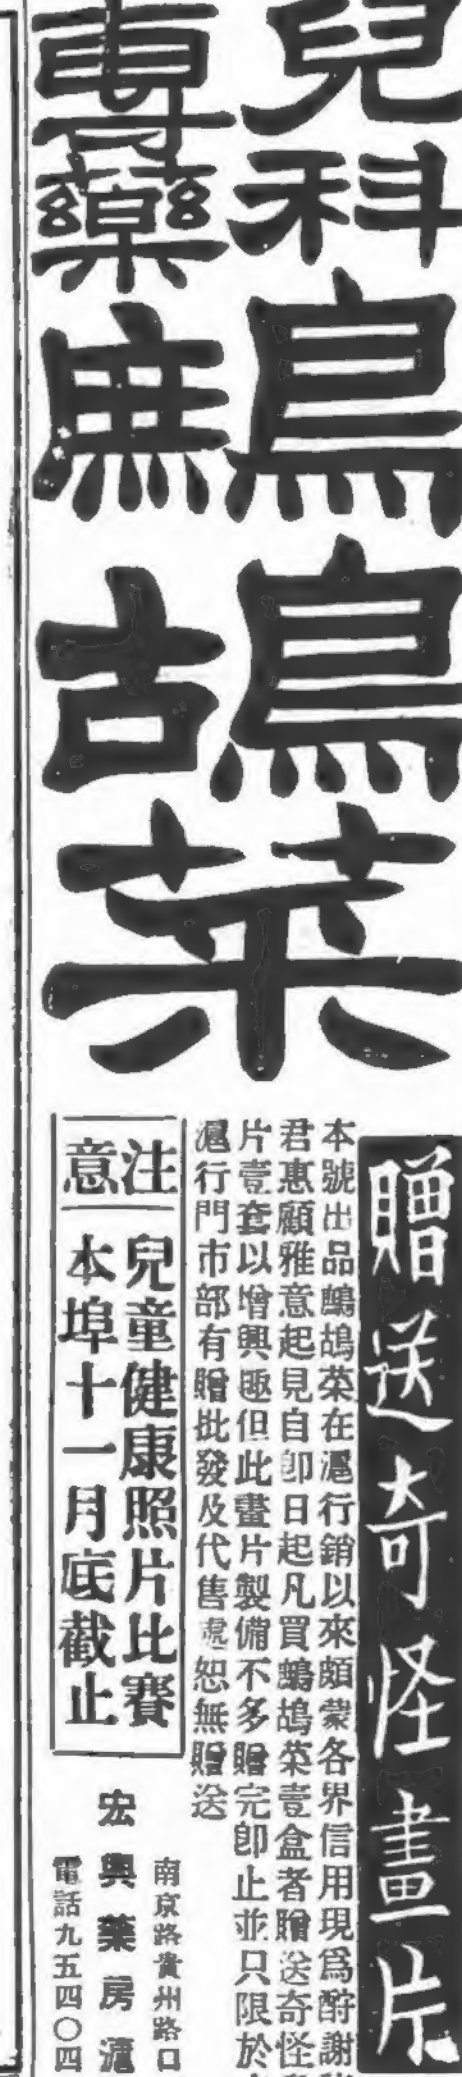 兒科
專藥
鷓鴣菜
贈送奇怪畫片
本號出品鷓鴣菜在滬行銷以來頗蒙各界信用現爲酧謝
君惠顧雅意起見自卽日起凡買鷓鴣菜壹盒者贈送奇怪
片壹套以增興趣但此畫片製備不多贈完卽止並只限於
滬行門市部有贈批發及代售處恕無贈送
注意
兒童健康照片比賽
本埠十一月底截止
南京路貴州路口
宏興藥房滬
電話九五四〇四